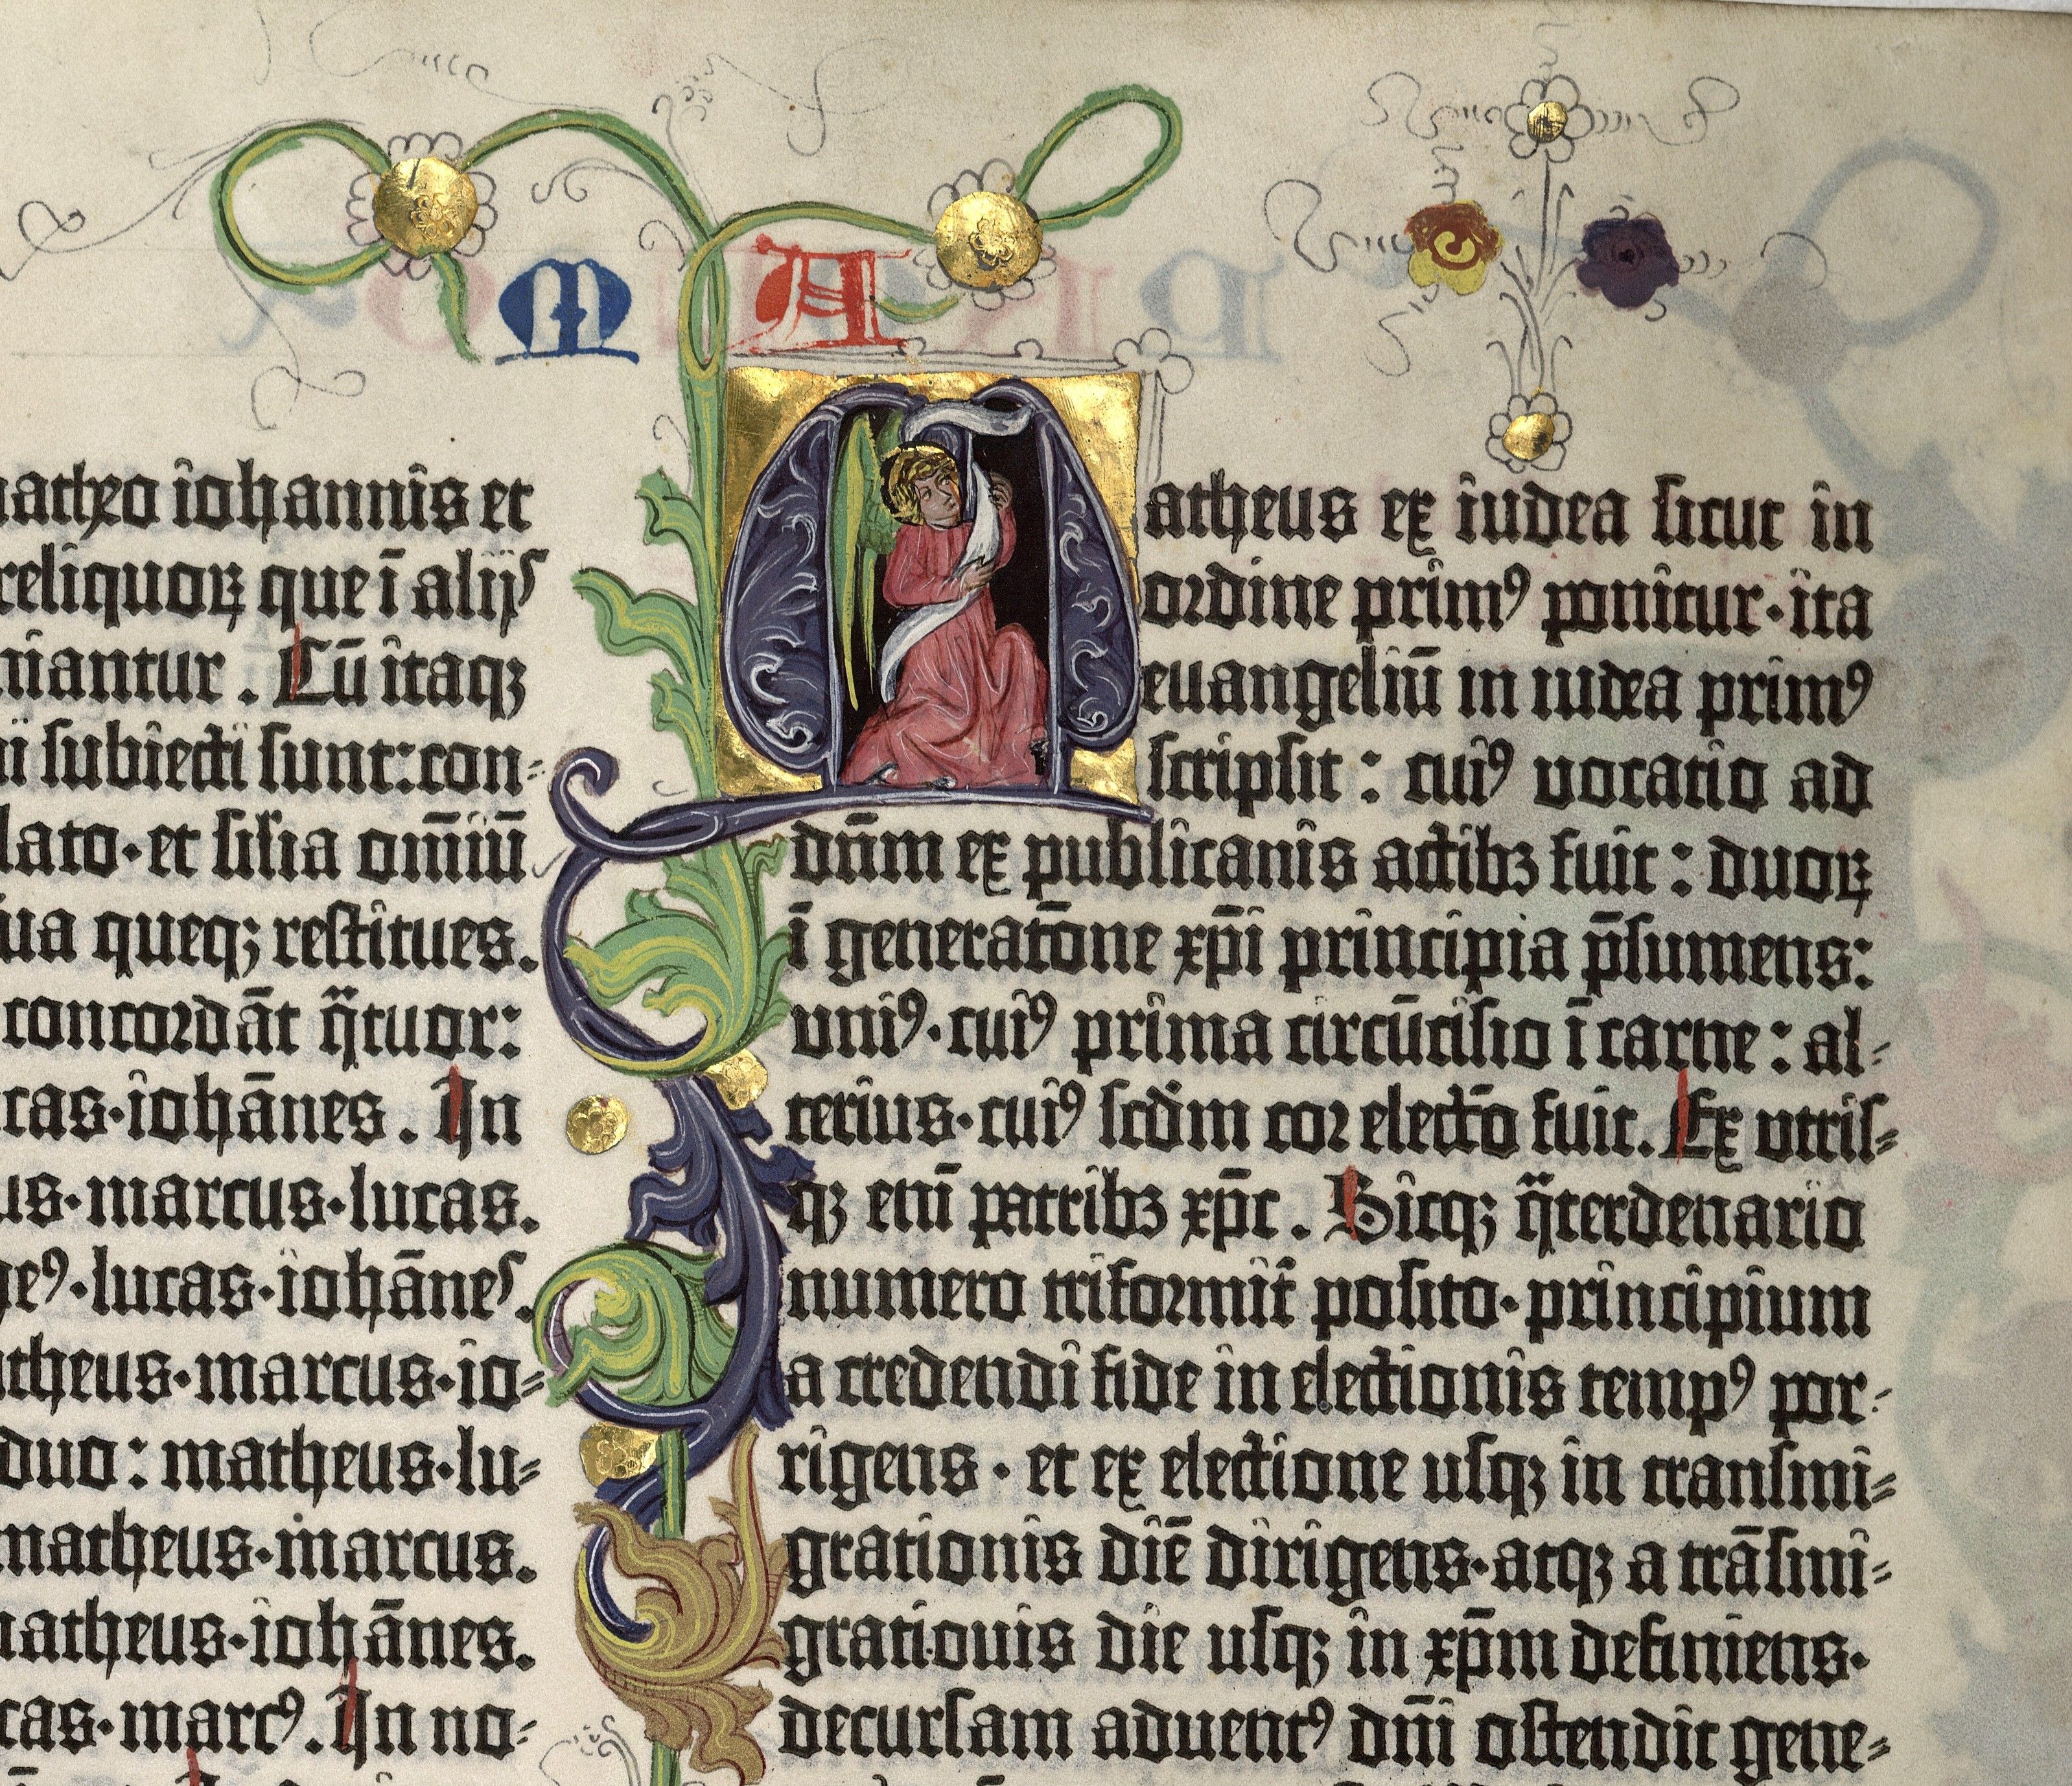 M A
iohannis et
que ī alijs
Cū itaqꝫ
subiecti sunt: con⸗
et silia om̄iū
queqꝫ restitues.
concordāt q̈tuor:
iohānes. In
marcus·lucas.
lucas·iohānes.
marcus·io⸗
duo: matheus·lu⸗
matheus·marcus.
matheus·iohānes.
marcꝰ. In no⸗
Matheus ex iudea sicut in
ordine primꝰ ponitur·ita
euangeliū in iudea primꝰ
scripsit: cuiꝰ vocatio ad
dn̄m ex publicanis actibꝫ fuit: duoꝝ
ī generatōne xp̄i principia p̄sumens:
vniꝰ·cuiꝰ prima circūcisio ī carne: al⸗
terius·cuiꝰ scd̄m cor electō fuit. Ex vtris⸗
qꝫ eni̅ patribꝫ xp̄c. Sicqꝫ q̈terdenario
numero triformit̄ posito·principium
a credendi fide in electionis tempꝰ por⸗
rigens·et ex electione usqꝫ in transmi⸗
grationis diē dirigens·atqꝫ a trāsmi⸗
grationis die usqꝫ in xp̄m definiens·
decursam aduentꝰ dn̄i ostendit gene⸗